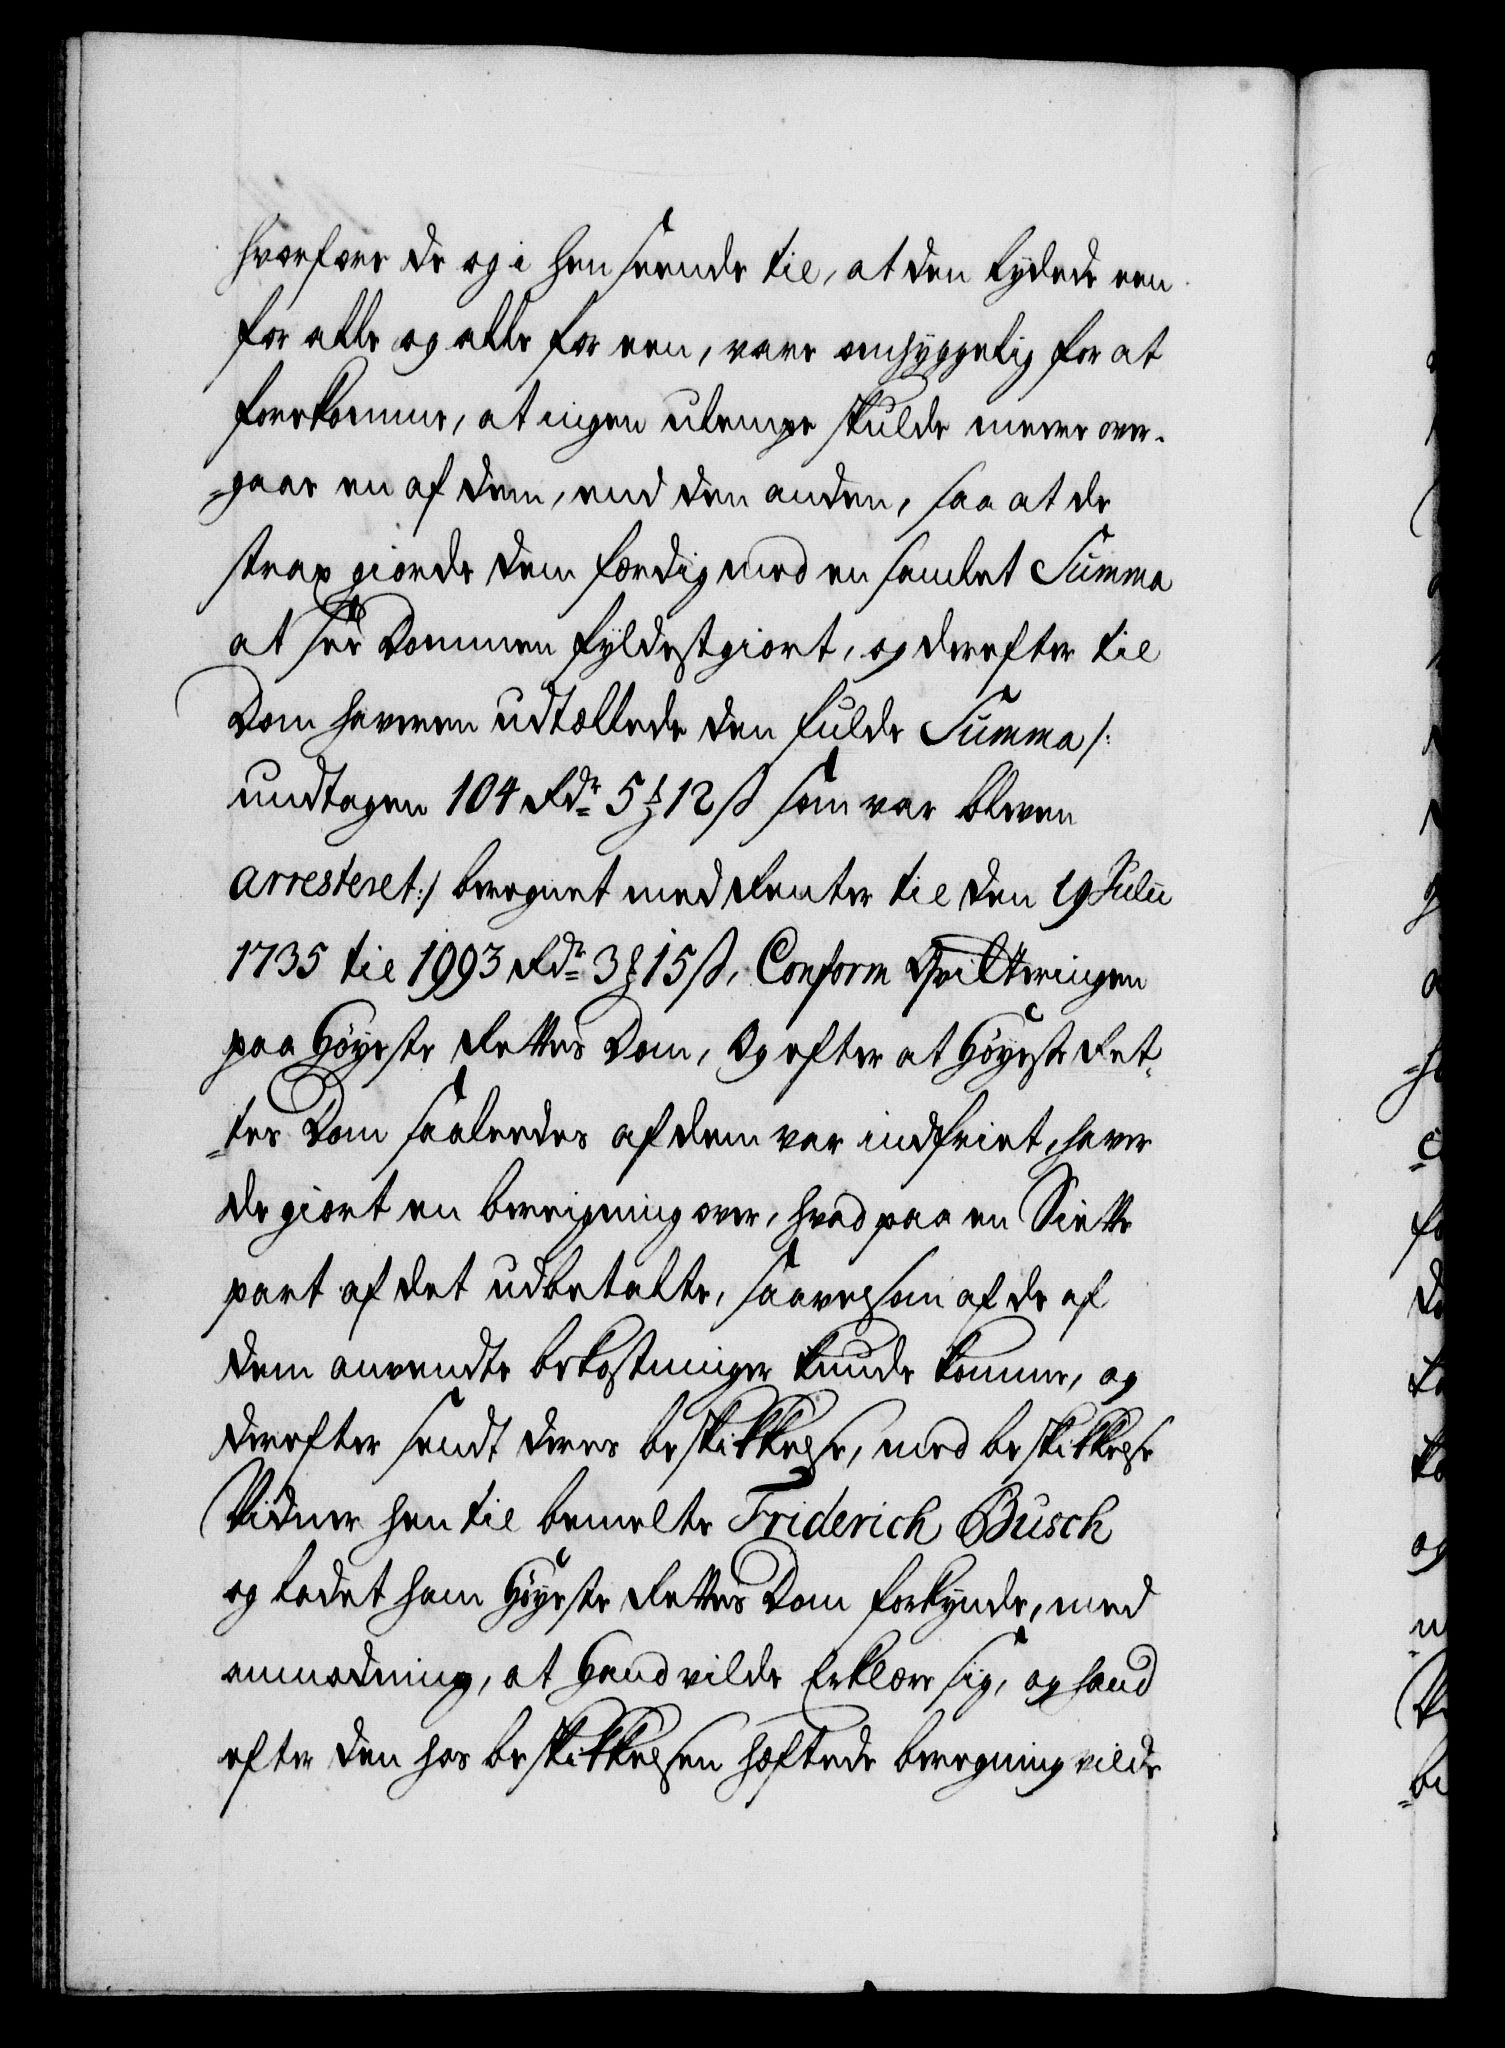 hvorfore de og i henseende til, at den lydede een
for alle og alle for een, vare omhyggelig for at
forekomme, at ingen ulempe skulde meere over-
=gaae en af dem, end den anden, saa at de
strax giorde dem færdig med en samlet Summa
at see Dommen fyldestgiort, og derefter til
Domhaveren udtællede den fulde Summa /:
undtagen 104 Rdr 5 ß 12 ß som var bleven
arresteret :/ beregnet med Renter til den 19 Julii
1735 til 1993 Rdr 3 ß 15 ß, Conform Qvitteringen
paa Høyeste Rettes Dom, Og efter at Høyeste Ret-
=tes Dom saaledes af dem var indfriet, haver
de giort en beregning over, hvad paa en Siette
part af det udbetalte, saavelsom af de af
dem anvendte bekostninger kunde komme, og
derefter sendt deres beskikkelse, med beskikkelse
Vidner hen til bemelte Friderich Busch
og ladet ham Høyeste Rettes Dom forkynde, med
anmodning, at Hand vilde Erklære sig, og hand
efter den hos beskikkelsen hæftede beregning vilde